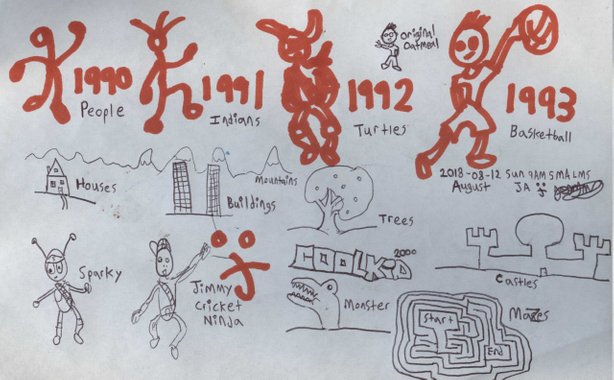 1990
People
1991
Indians
1992
Turtles
original
Oatmeal
1993
Basketball
2018-08-12 Sun 9AM SMA LMS
August
JA
Houses
Buildings
Mountains
Trees
Castles
Sparky
Jimmy
Cricket
Ninja
J
COOLKID
2000
Monster
Mazes
Start
End